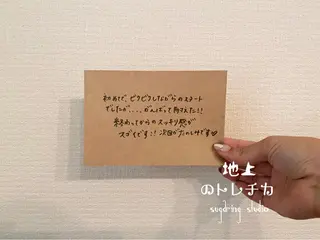 初めて、ビクビクしながらのスタート
でしたが...、がんばって耐えた!!
終わってからのスッキリ感が
スゴイです!! 次回がたのしみです♡
地上
のトレチカ
sugdring studio